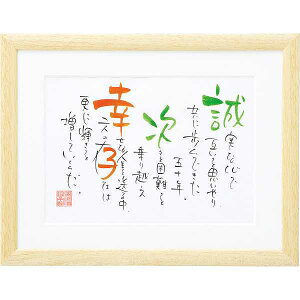 誠実な心で
互いを思いやり
共に歩んできた
五十年。
次々と困難を
乗り越え
幸せな人生を送る中
二人の存在は
更に輝きを
増していくんだ。